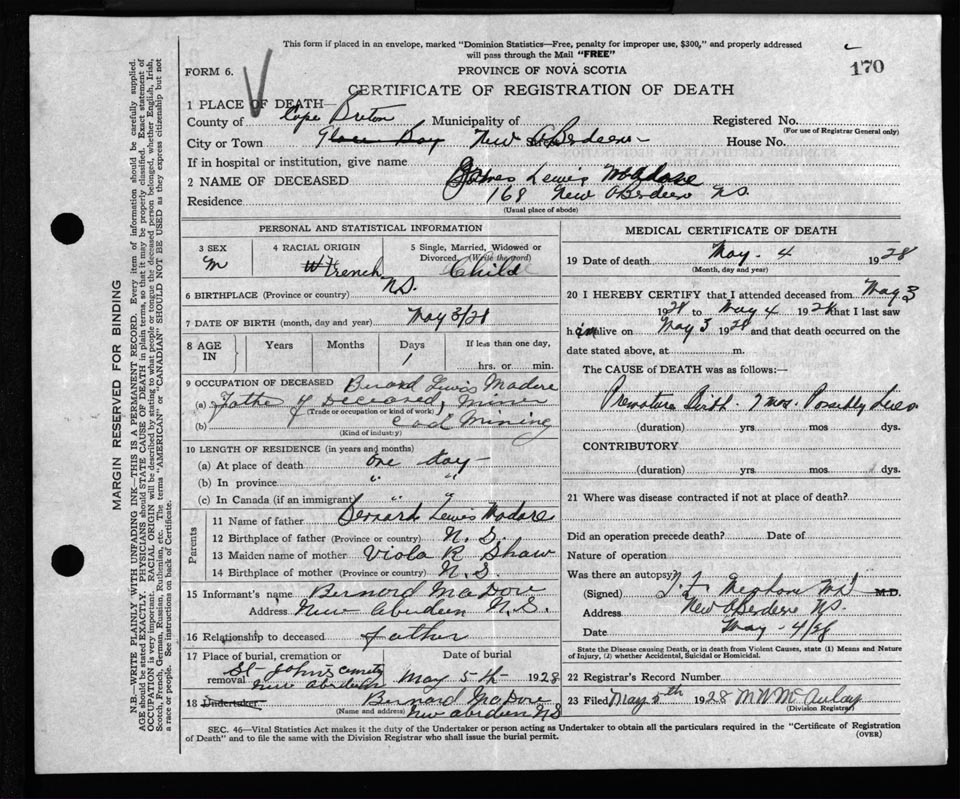 This form if placed in an envelope, marked "Dominion Statistics—Free, penalty for improper use, $300," and properly addressed
will pass through the Mail "FREE"
170
FORM 6.
PROVINCE OF NOVA SCOTIA
CERTIFICATE OF REGISTRATION OF DEATH
1 PLACE OF DEATH—
County of Cape Breton Municipality of Registered No.
(For use of Registrar General only)
City or Town Glace Bay New Aberdeen House No.
If in hospital or institution, give name
2 NAME OF DECEASED James Lewis Madore
Residence 168 New Aberdeen NS
(Usual place of abode)
PERSONAL AND STATISTICAL INFORMATION
3 SEX
M
4 RACIAL ORIGIN
French
5 Single, Married, Widowed or
Divorced. (Write the word)
Child
6 BIRTHPLACE (Province or country) NS.
7 DATE OF BIRTH (month, day and year) May 3/28
8 AGE IN
Years Months Days If less than one day,
1 hrs. or min.
9 OCCUPATION OF DECEASED Bernard Lewis Madore
(a) Father of Deceased, Miner
(Trade or occupation or kind of work)
(b) Coal Mining
(Kind of industry)
10 LENGTH OF RESIDENCE (in years and months)
(a) At place of death one day
(b) In province " "
(c) In Canada (if an immigrant) " "
Parents
11 Name of father Bernard Lewis Madore
12 Birthplace of father (Province or country) N.S.
13 Maiden name of mother Viola R Shaw
14 Birthplace of mother (Province or country) N.S.
15 Informant's name Bernard MaDore
Address New Aberdeen N.S.
16 Relationship to deceased father
17 Place of burial, cremation or
removal St- John's
New Aberdeen
Date of burial
May 5-th- 1928
18 Undertaker Bernard MaDore
(Name and address) New aberdeen NS
MEDICAL CERTIFICATE OF DEATH
19 Date of death May - 4 1928
(Month, day and year)
20 I HEREBY CERTIFY that I attended deceased from May 3
1928 to May 4 1928 that I last saw
him alive on May 3 1928 and that death occurred on the
date stated above, at m.
The CAUSE of DEATH was as follows:—
Premature Birth - 7 mos. Possibly
(duration) yrs. mos. dys.
CONTRIBUTORY
(duration) yrs. mos. dys.
21 Where was disease contracted if not at place of death?
Did an operation precede death? Date of
Nature of operation
Was there an autopsy?
(Signed) MD M.D.
Address New Aberdeen NS.
Date May - 4/28
State the Disease causing Death, or in Death from Violent Causes, state (1) Means and Nature
of Injury, (2) whether Accidental, Suicidal or Homicidal.
22 Registrar's Record Number
23 Filed May 5th 1928 M McAulay
(Division Registrar)
SEC. 46—Vital Statistics Act makes it the duty of the Undertaker or person acting as Undertaker to obtain all the particulars required in the "Certificate of Registration
of Death" and to file the same with the Division Registrar who shall issue the burial permit.
(OVER)
MARGIN RESERVED FOR BINDING
N.B.—WRITE PLAINLY WITH UNFADING INK—THIS IS A PERMANENT RECORD. Every item of information should be carefully supplied.
AGE should be stated EXACTLY. PHYSICIANS should STATE CAUSE OF DEATH in plain terms, so that it may be properly classified. Exact statement of
OCCUPATION is very important. RACIAL ORIGIN will be described by stating to what people or tongue the deceased person belonged, whether English, Irish,
Scotch, French, German, Russian, Ruthenian, etc. The terms "AMERICAN" or "CANADIAN" SHOULD NOT BE USED as they express citizenship but not
a race or people. See instructions on back of Certificate.